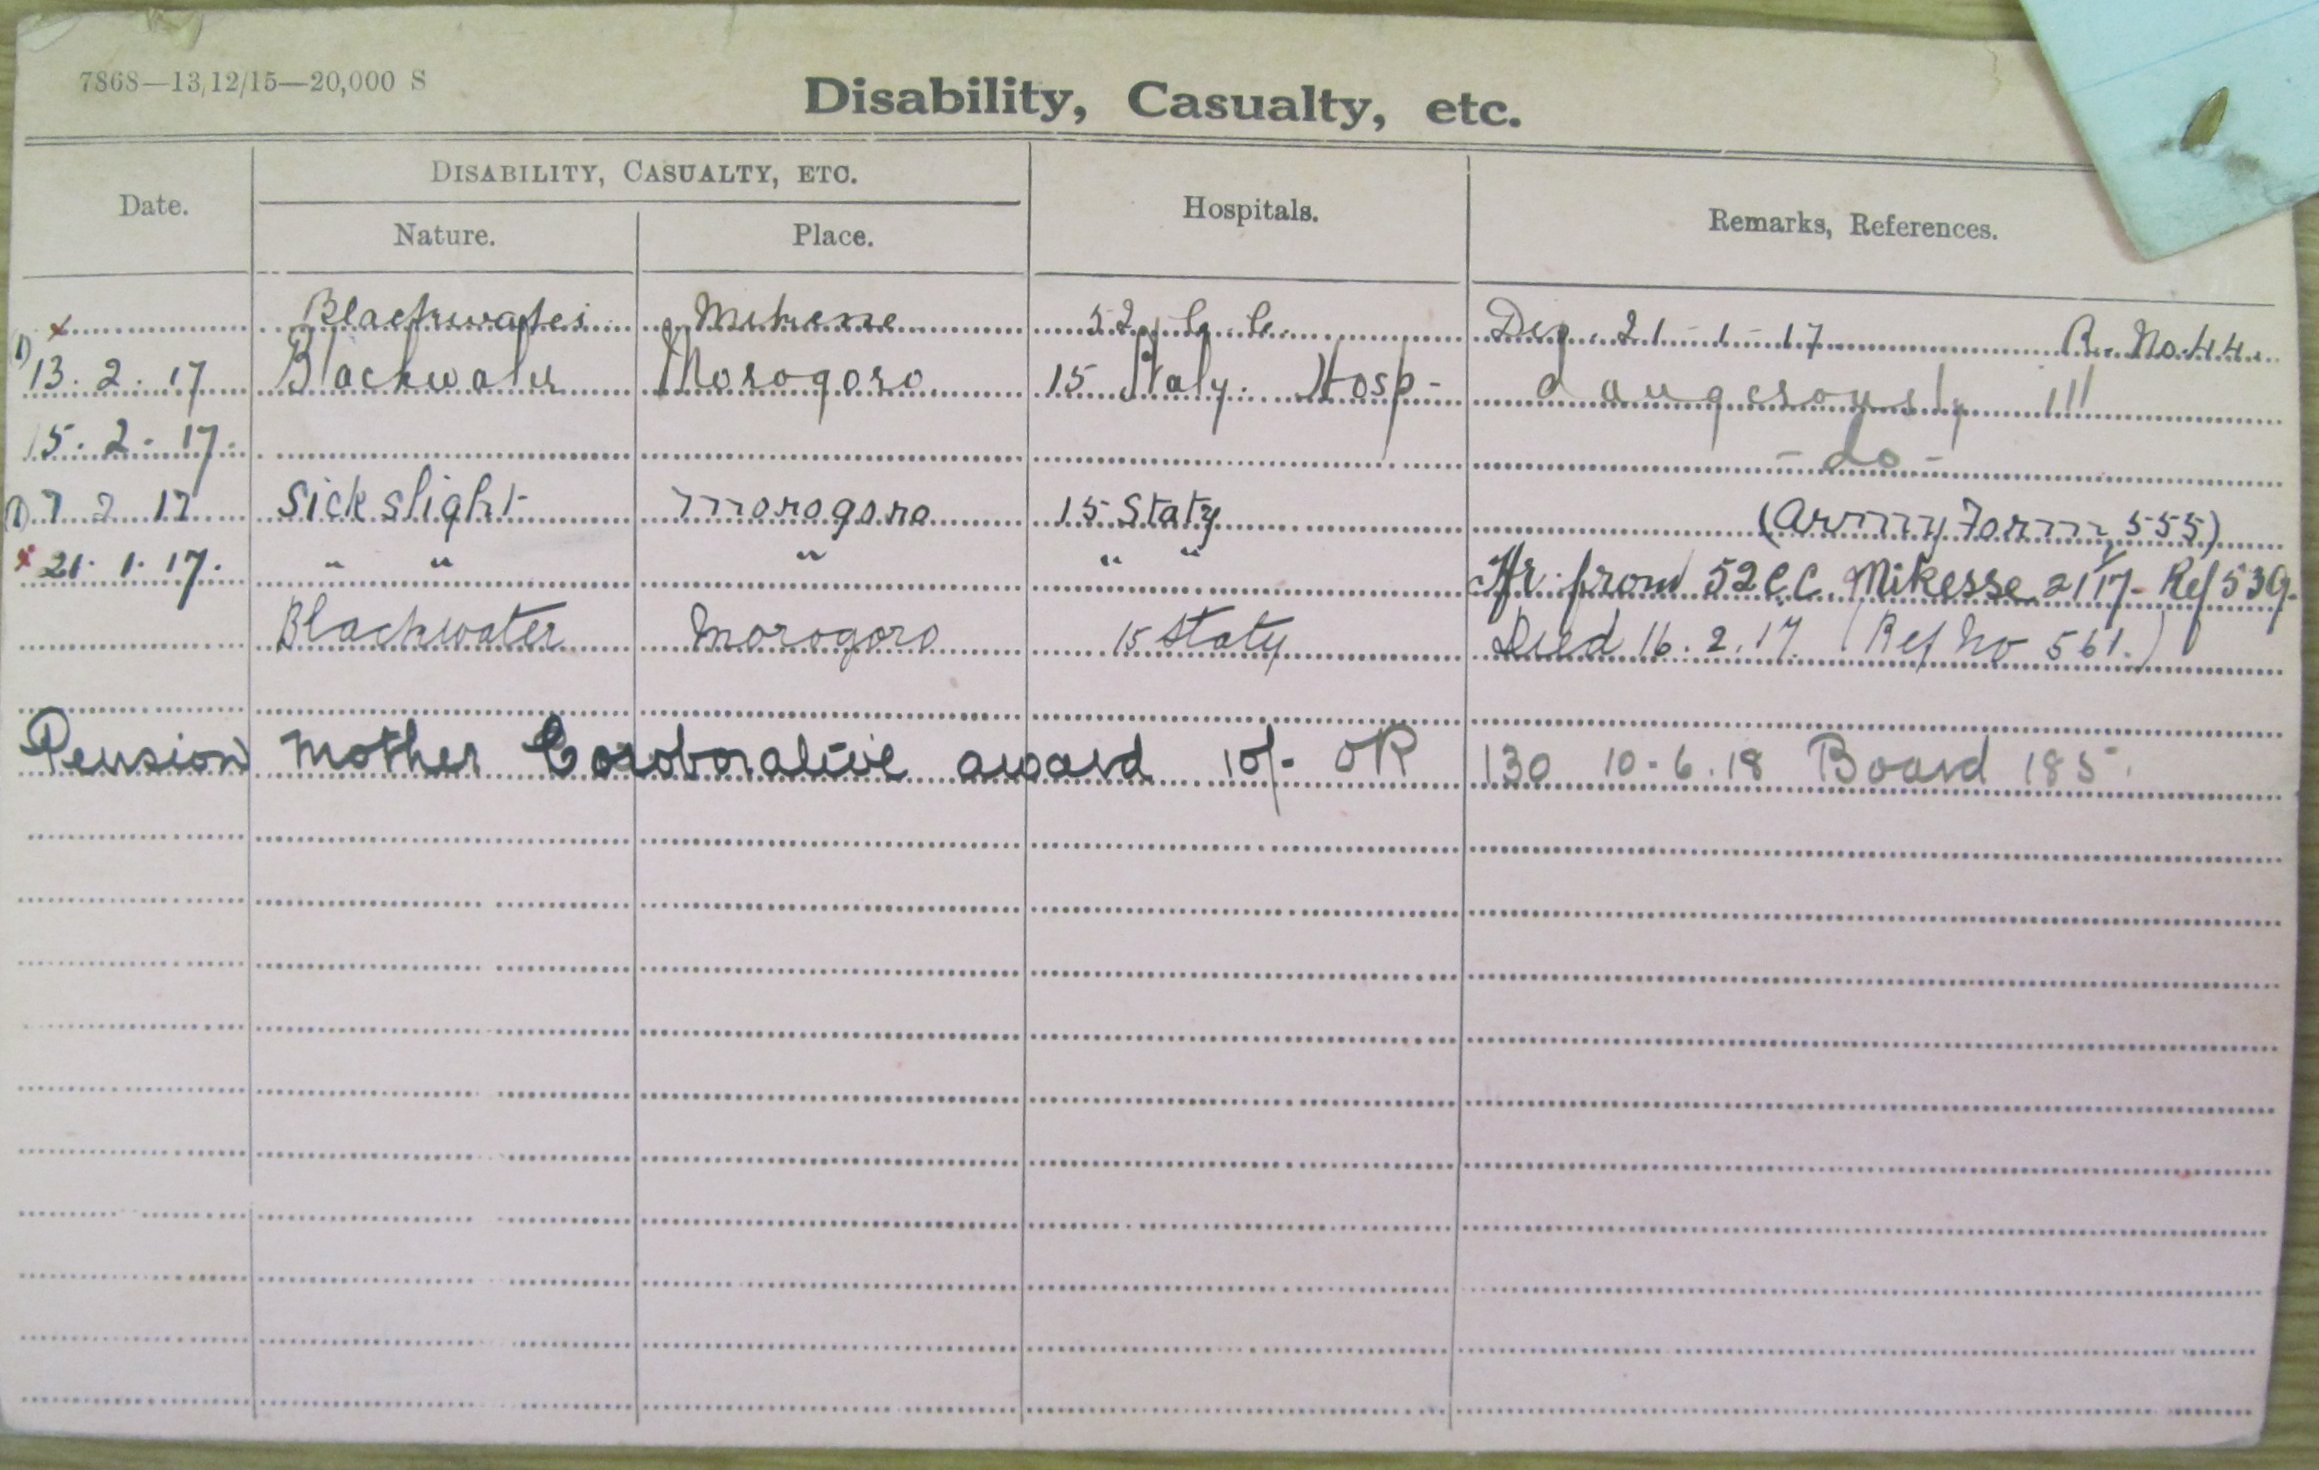 7868—13,12/15—20,000 S
Disability, Casualty, etc.
Date. DISABILITY, CASUALTY, ETC. Hospitals. Remarks, References.
Nature. Place.
x Blackwater 52 C. C. Dep. 21-1-17 R. No. 44.
1) 13.2.17 Blackwater Morogoro 15 Staty. Hosp- dangerously ill
15.2.17. -do-
1) 7 2 17 Sick slight Morogoro 15 Staty (Army Form 555)
x 21.1.17. " " " " " Tfr from 52 CC Mikesse 21/1/17- Ref 539.
Blackwater Morogoro 15 Staty Died 16.2.17. (Ref No 561.)
Pension Mother Coroborative award 10/- OR 130 10-6.18 Board 185.